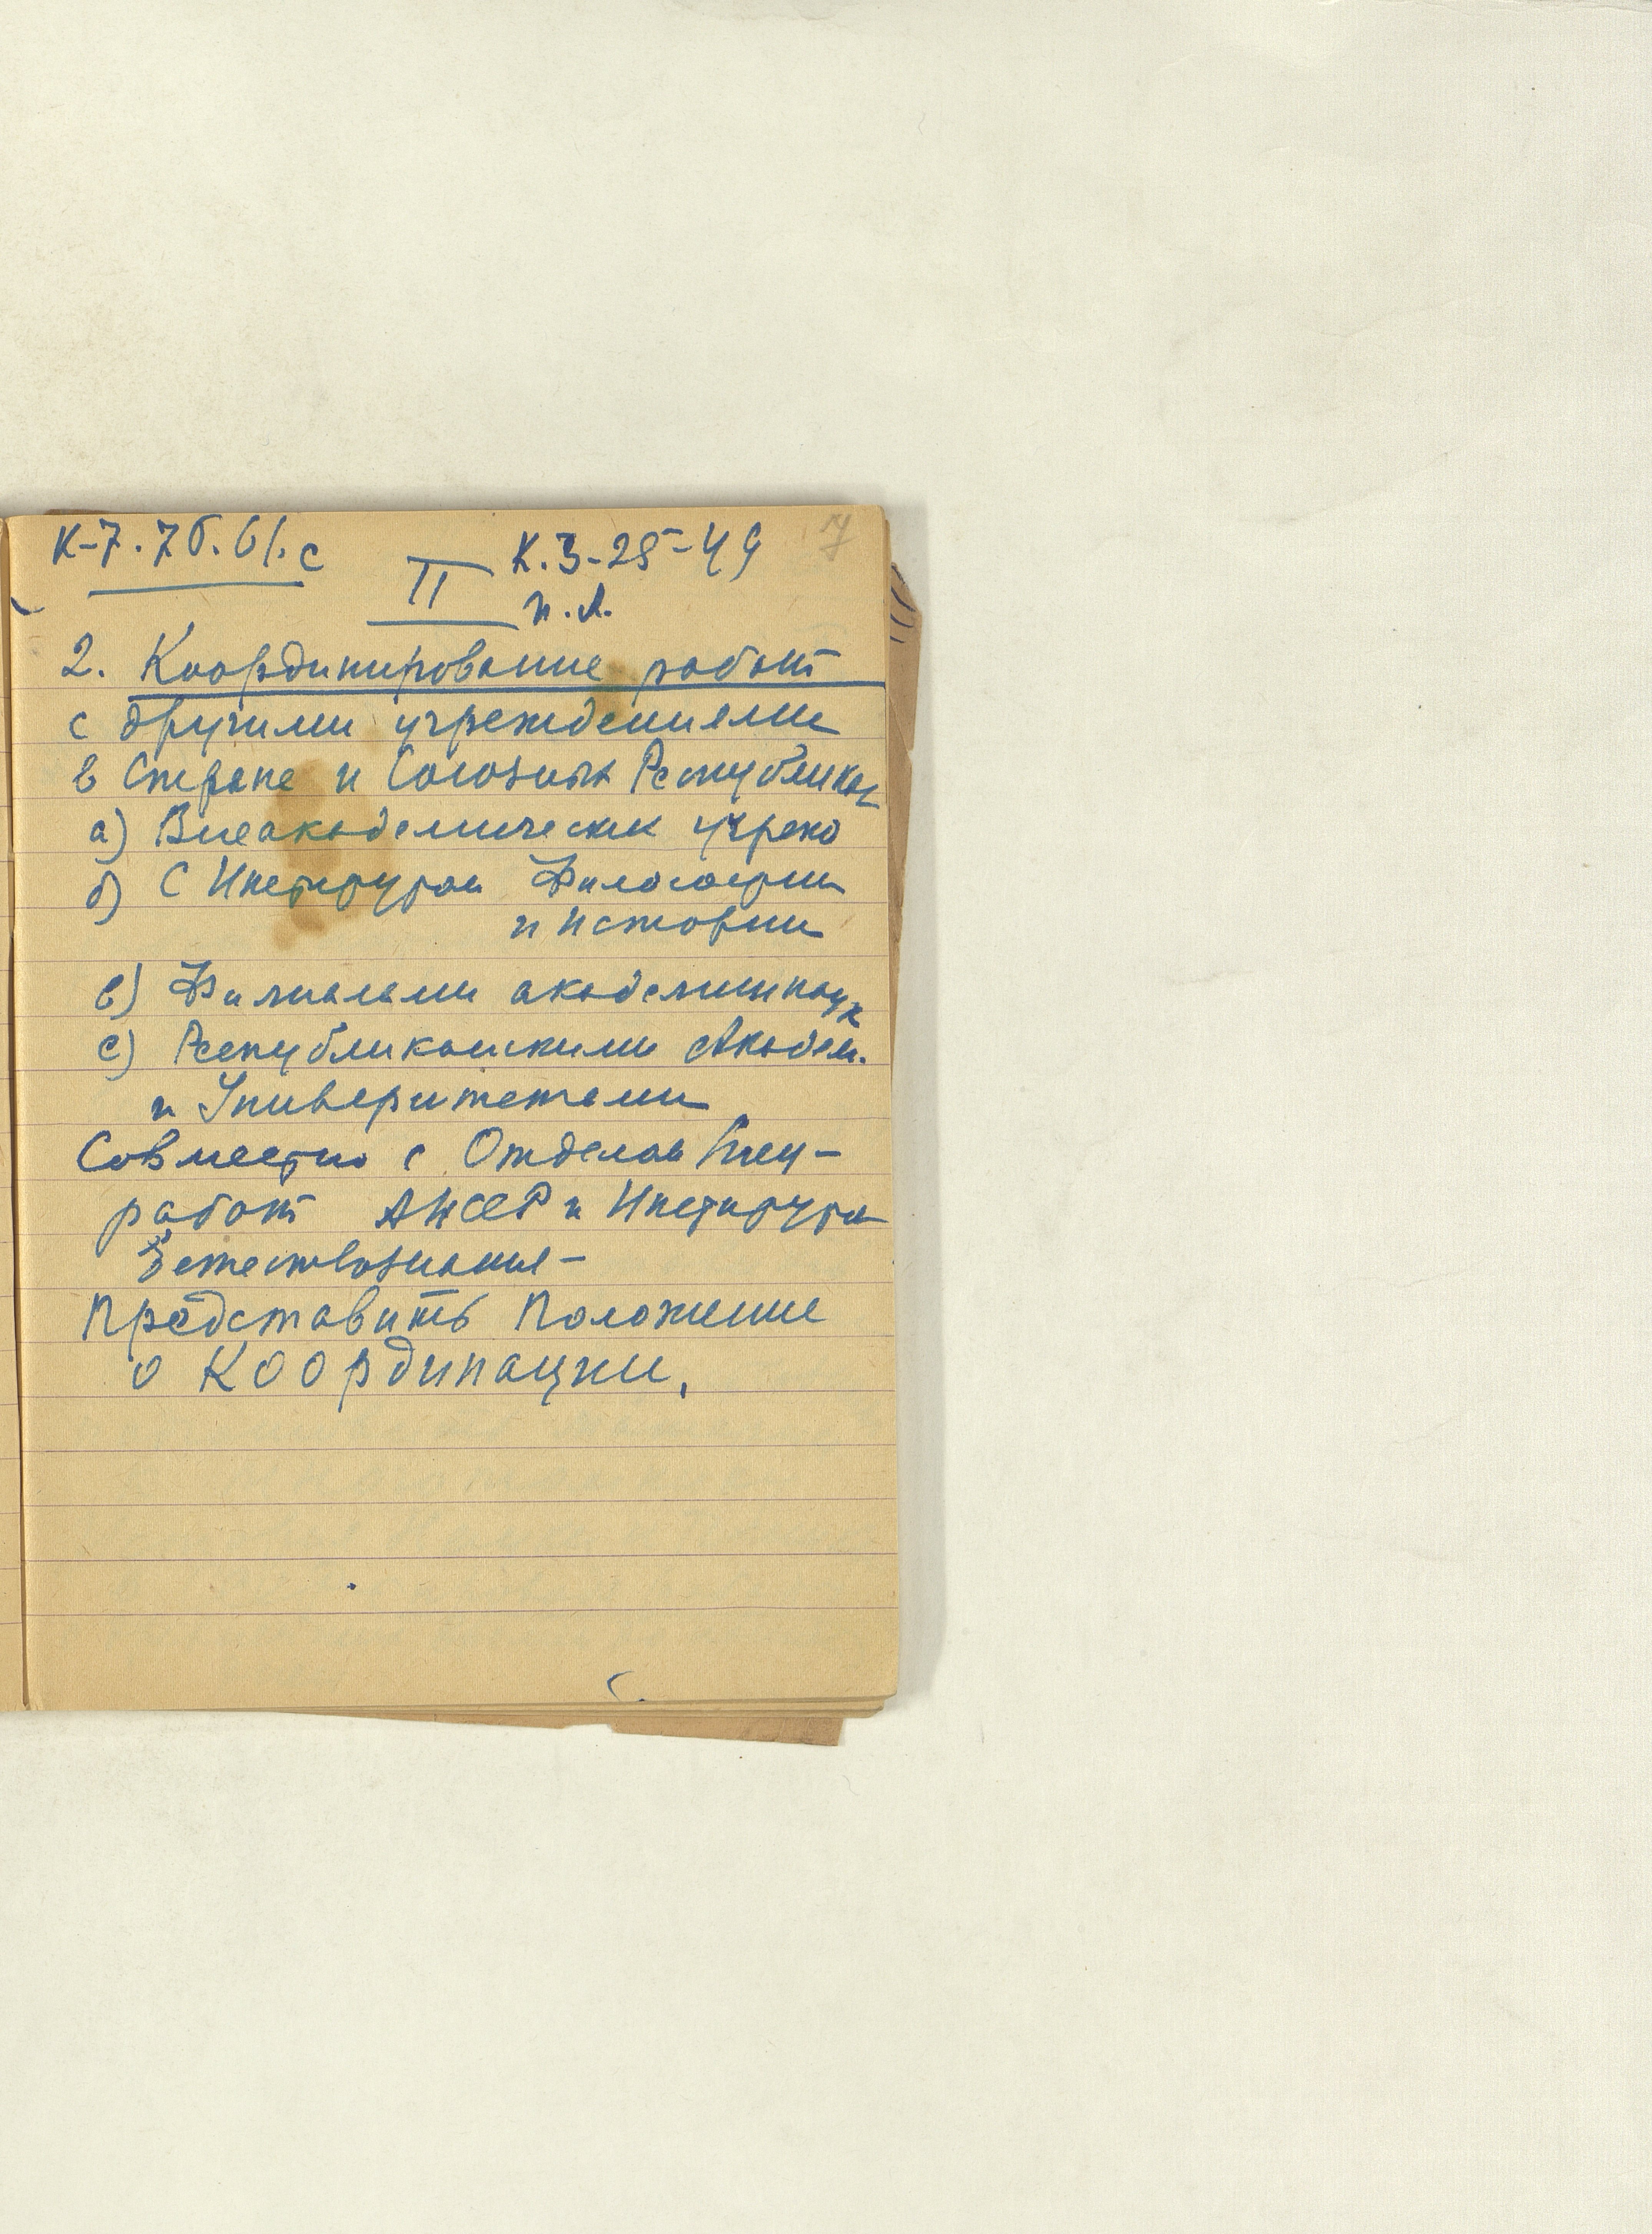 К-7.75.61.с
К.3-25-49
7
II
н.л.
2. Координирование работ
с другими учреждениями
в Стране и Союзных Республиках
а) Внеакадемических учрежд
б) С Институтом Философии
и истории
в) Филиалами академии наук
с) Республиканскими Академ.
и Университетами
Совместно с Отделом
работ АНСССР и Института
Естествознания –
Представить Положение
о Координации.